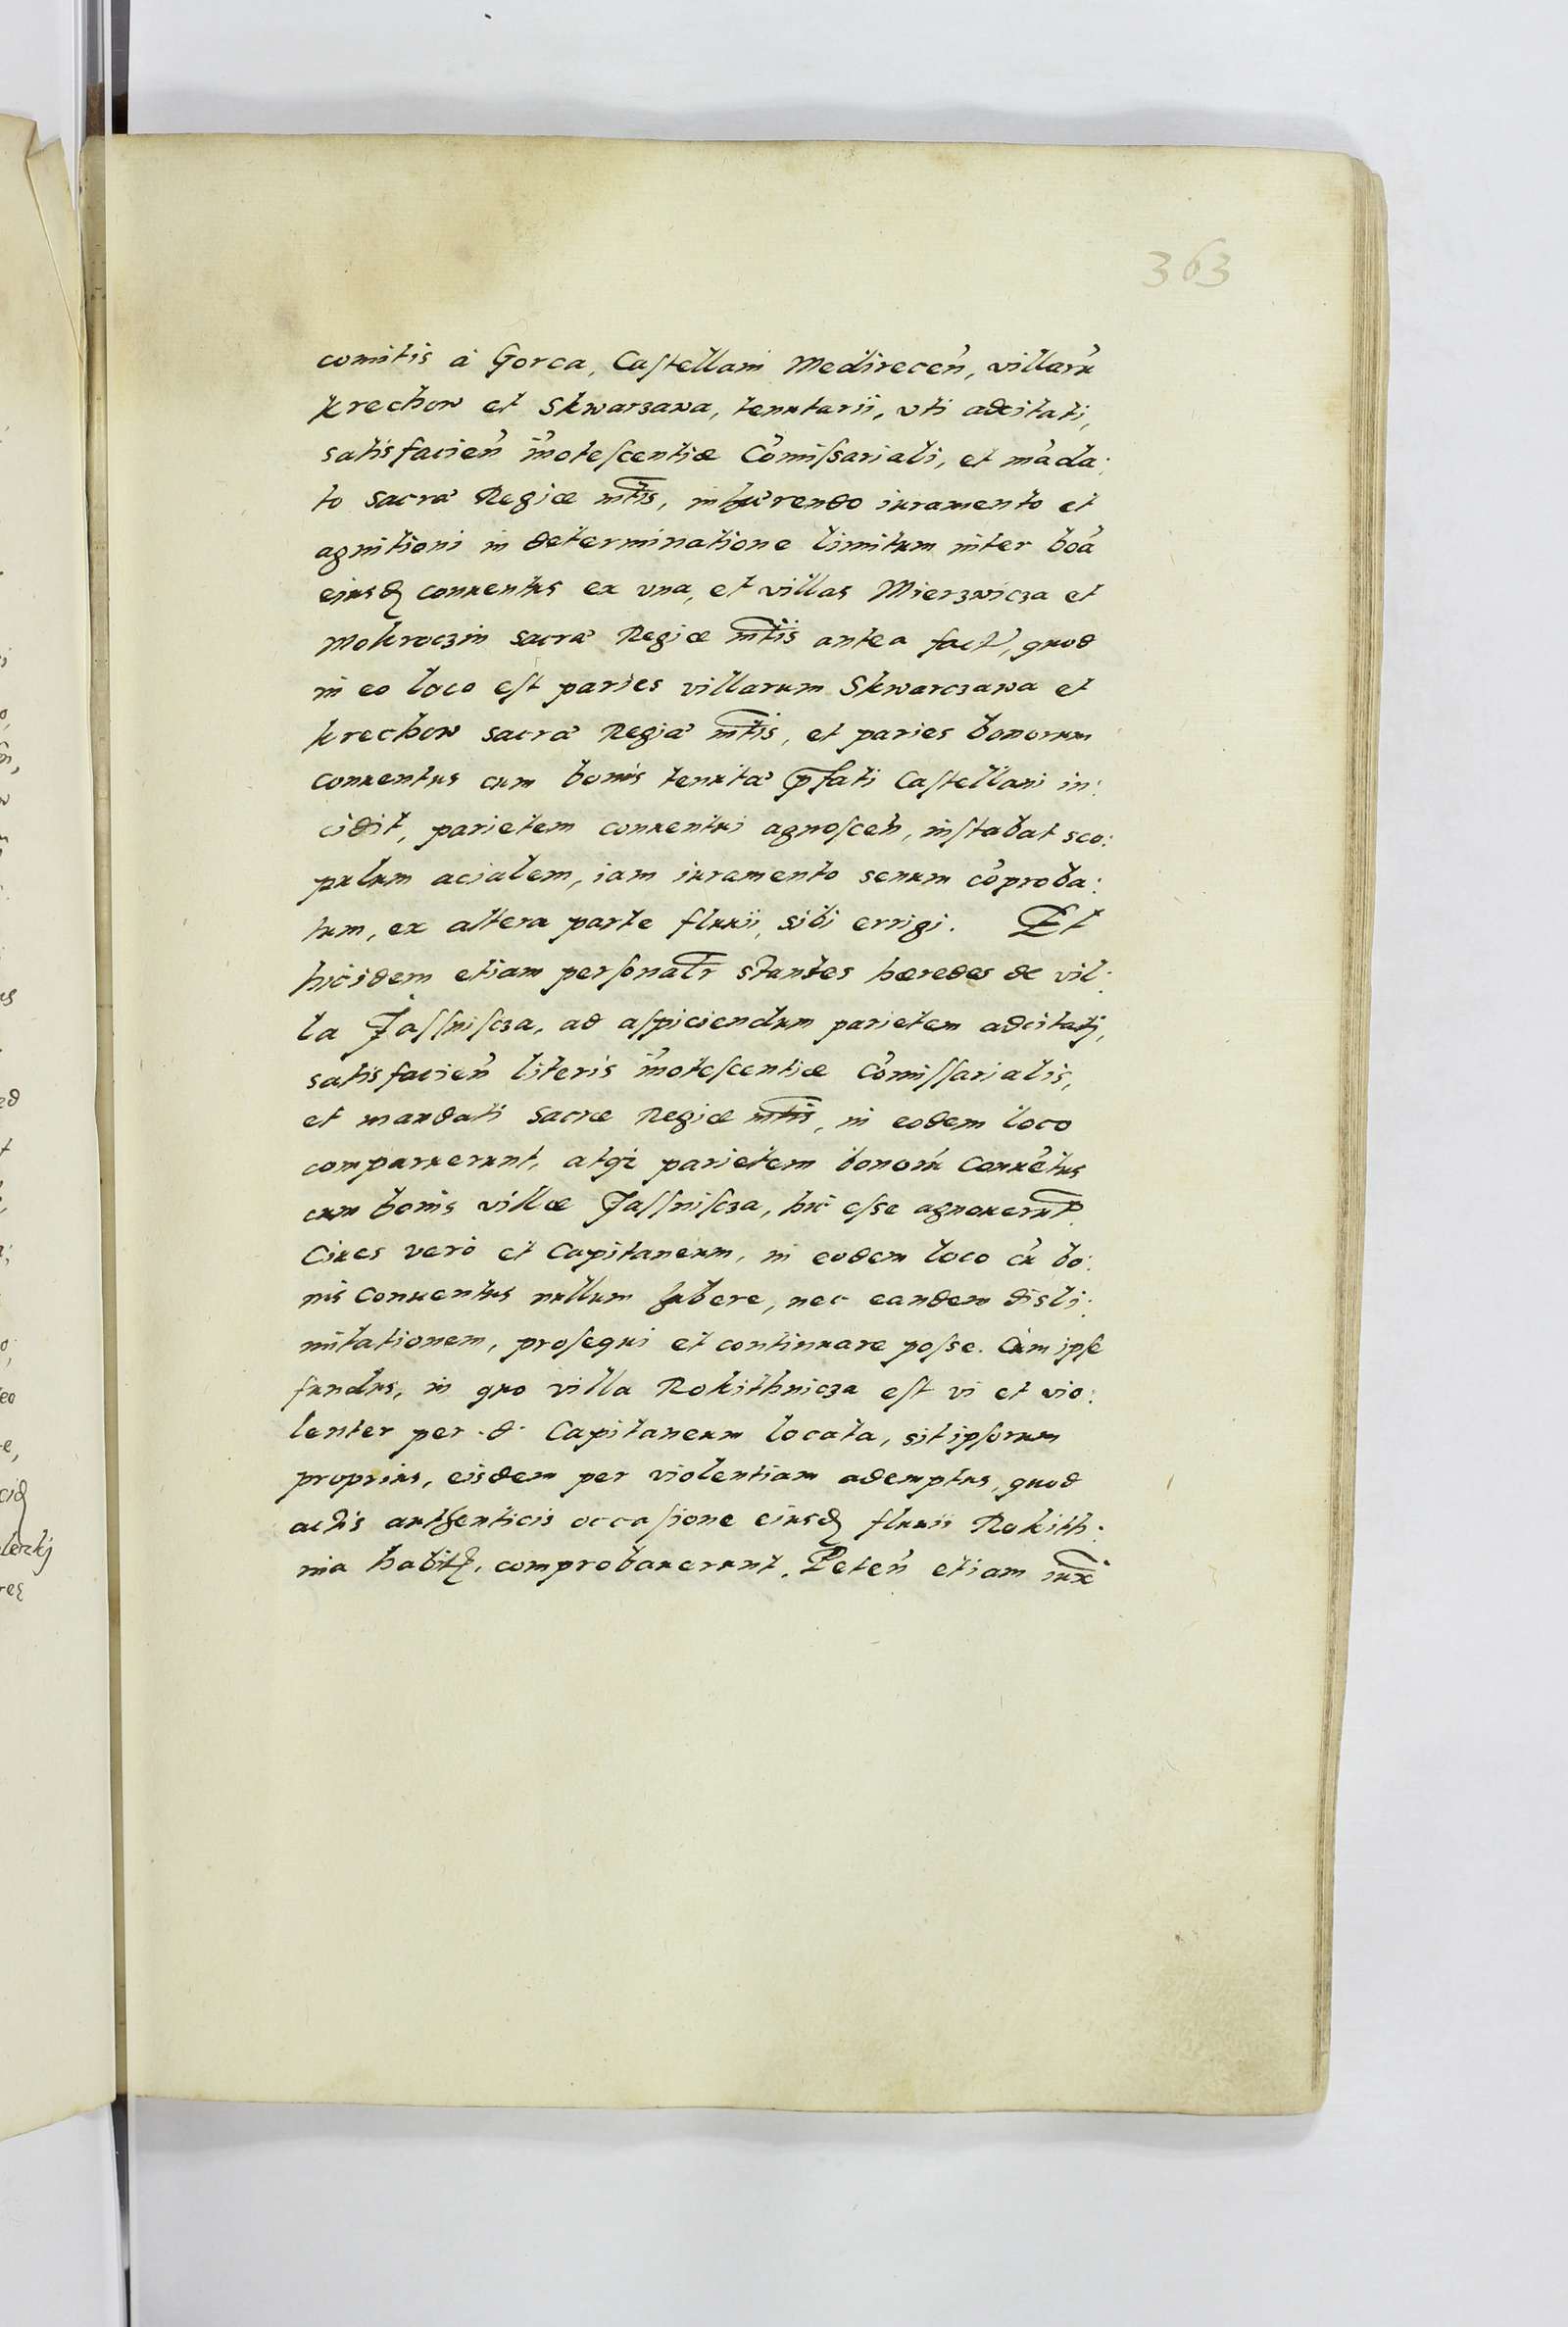 363
comitis à Gorca, Castellani Medirecen̄, villarū
Krechow et Skwarzawa, tenutarii, vti adcitati,
satisfacien̄ īnotescentiæ Cōmissariali, et māda:
to sacræ Regiæ mt̄is, inhærendo iuramento et
agnitioni in determinatione limitum inter boā
eiusdꝫ conuentus ex vna, et villas Mierzwicza et
Mokroczin sacræ Regiæ mt̄is antea fact', quod
in eo loco est paries villarum Skwarczawa et
Krechow sacræ Regiæ mt̄is, et paries bonorum
conuentus cum bonis tenutæ p̄fati Castellani in:
cidit, parietem conuentui agnoscen̄, instabat sco:
pulum acialem, iam iuramento senum cōproba:
tum, ex altera parte fluuii, sibi errigi. Et
hicidem etiam personalr̄ stantes hæredes de vil:
la Jassniscza, ad aspiciendum parietem adcitatj,
satisfacien̄ literis īnotescentiæ Cōmissarialis,
et mandati sacræ Regiæ mt̄is, in eodem loco
comparuerunt, atqꝫ parietem bonorū conuētus
cum bonis villæ Jassniscza, hic esse agnouerūt.
Ciues verò et Capitaneum, in eodem loco cū bo:
nis conuentus nullum habere, nec eandem disli:
mitationem, prosequi et continuare posse. Cùm ipse
fundus, in quo villa Rokithnicza est vi et vio:
lenter per .d. Capitaneum locata, sit ipsorum
proprius, eisdem per violentiam ademptus, quod
actis authenticis occasione eiusdꝫ fluuii Rokith:
nia habitꝫ, comprobauerunt. Peten̄ etiam iux̄